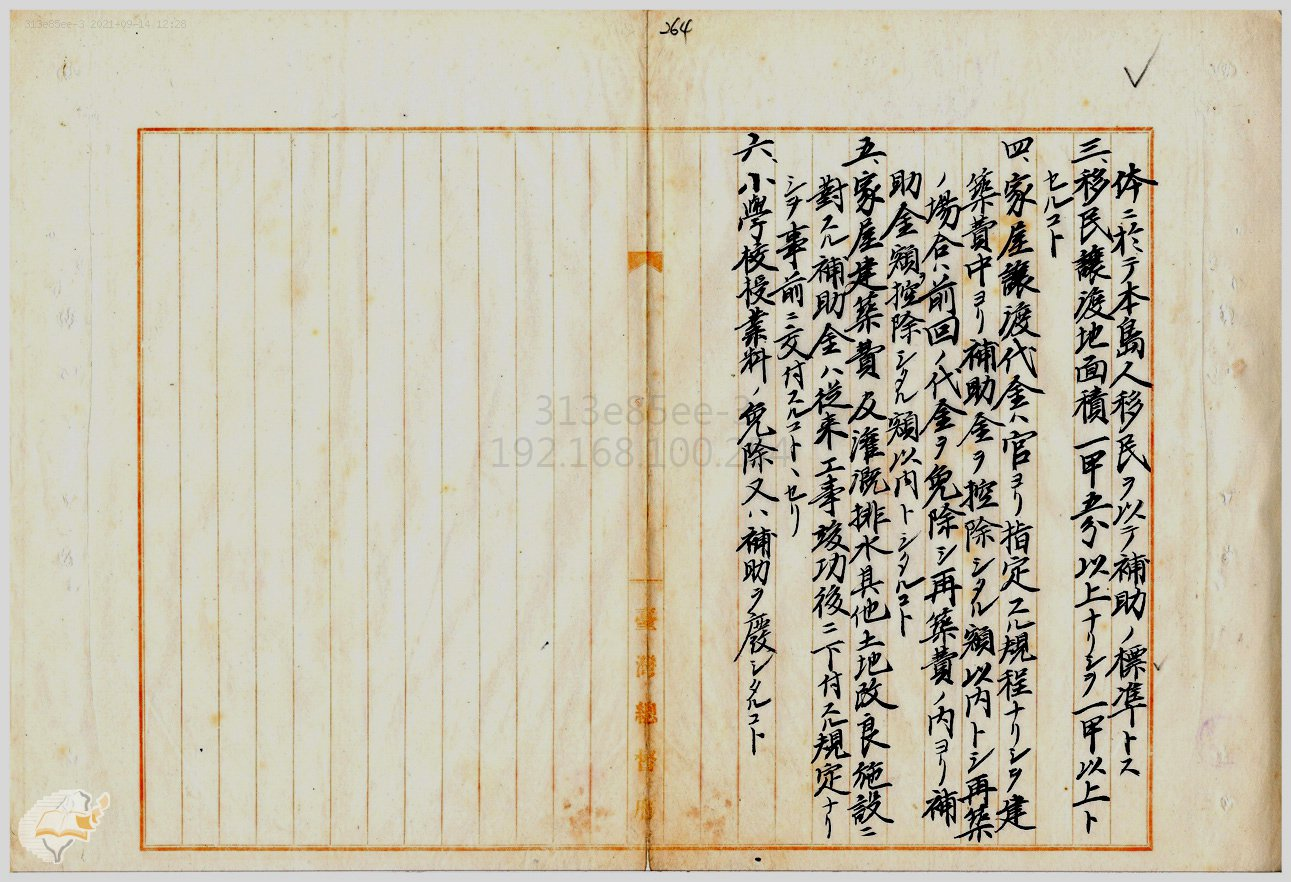 313e85ee-3 2021-09-14 12:28
264
体ニ於テ本島人移民ヲ以テ補助ノ標準トス
三、移民讓渡地面積一甲五分以上ナリシヲ一甲以上ト
セルコト
四、家屋讓渡代金ハ官ヨリ指定スル規程ナリシヲ建
築費中ヨリ補助金ヲ控除シタル額以内トシ再築
ノ場合ハ前回ノ代金ヲ免除シ再築費ノ内ヨリ補
助金額控除シタル額以内トシタルコト
五、家屋建築費及灌漑排水其他土地改良施設ニ
對スル補助金ハ従来工事竣功後ニ下付スル規定ナリ
シヲ事前ニ交付スルコトヽセリ
六、小學校授業料ノ免除又ハ補助ヲ廢シタルコト
臺灣總督府
313e85ee-3
192.168.100.2